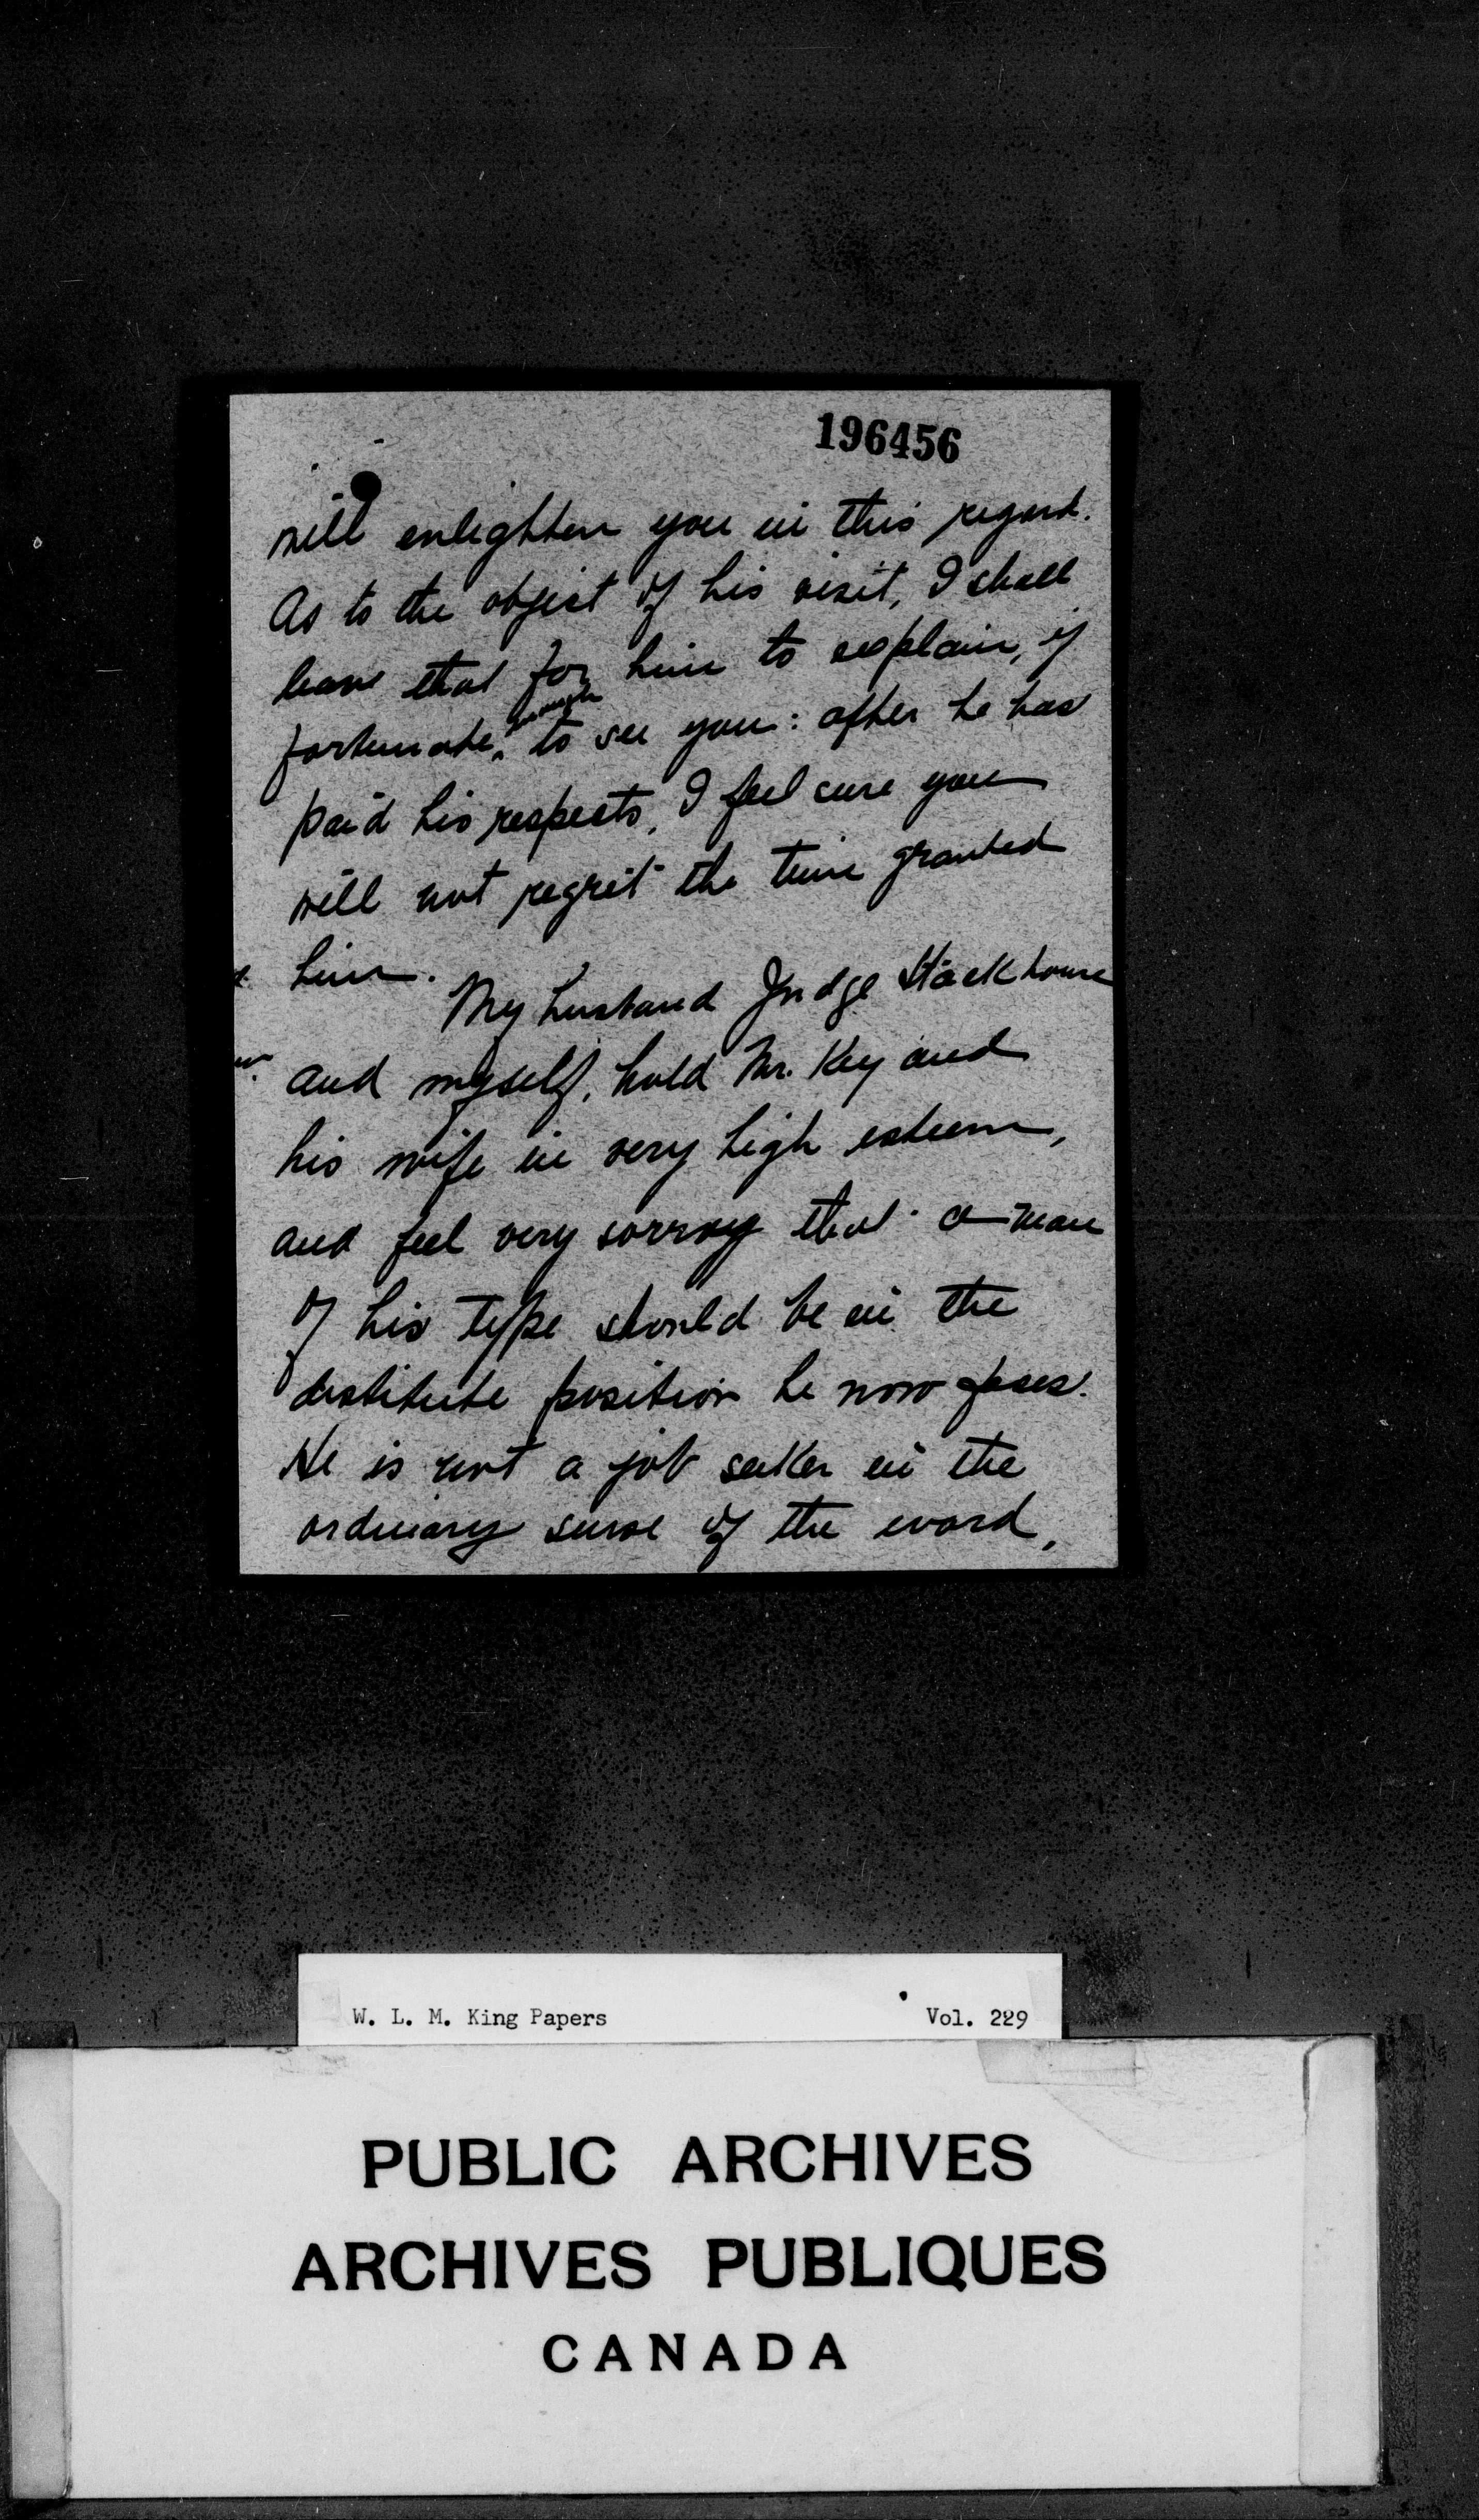 196456
will enlighten you in this regard.
As to the object of his visit, I shall
leave that for him to explain, if
fortunate enough to see you: after he has
paid his respects, I feel sure you
will not regret the time granted
him.
My husband Judge Stackhouse
and myself, hold Mr. Key and
his wife in very high esteem,
and feel very sorry that a man
of his type should be in the
destitute position he now faces.
He is not a job seeker in the
ordinary sense of the word,
W. L. M. King Papers Vol. 229
PUBLIC ARCHIVES
ARCHIVES PUBLIQUES
CANADA